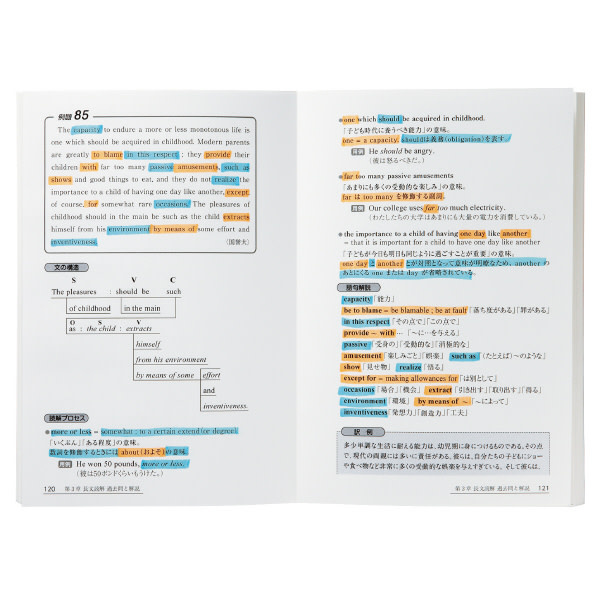 例題 85
The capacity to endure a more or less monotonous life is
one which should be acquired in childhood. Modern parents
are greatly to blame in this respect : they provide their
children with far too many passive amusements, such as
shows and good things to eat, and they do not realize the
importance to a child of having one day like another, except,
of course, for somewhat rare occasions. The pleasures of
childhood should in the main be such as the child extracts
himself from his environment by means of some effort and
inventiveness.
文の構造
S V C
The pleasures : should be such
of childhood in the main
O S V
as : the child : extracts
himself
from his environment
by means of some effort
and
inventiveness.
読解プロセス
more or less = somewhat; to a certain extend (or degree)
「いくぶん」「ある程度」の意味。
数詞を修飾するときには about (およそ) の意味。
He won 50 pounds, more or less.
(彼は50ポンドくらいもうけた。)
120 第3章 長文読解 過去問と解説
one which should be acquired in childhood.
「子ども時代に養うべき能力」の意味。
one = a capacity, should は義務(obligation)を表す。
He should be angry.
(彼は怒るべきだ。)
far too many passive amusements
「あまりにも多くの受動的な楽しみ」の意味。
far は too many を修飾する副詞。
Our college uses far too much electricity.
(わたしたちの大学はあまりにも大量の電力を消費している。)
the importance to a child of having one day like another
= that it is important for a child to have one day like another
「子どもが今日も明日も同じように過ごすことが重要」の意味。
one day と another とが対照となって意味が明瞭なため、another の
あとにくる one または day が省略されている。
語句解説
capacity「能力」
be to blame = be blamable ; be at fault「落ち度がある」「罪がある」
in this respect「その点で」「この点で」
provide ~ with …「~に…を与える」
passive「受身の」「受動的な」「消極的な」
amusement「楽しみごと」「娯楽」 such as (たとえば)~のような」
show「見せ物」 realize「悟る」
except for = making allowances for「は別として」
occasions「場合」「機会」 extract「引き出す」「取り出す」「得る」
environment「環境」 by means of ~「~によって」
inventiveness「発想力」「創造力」「工夫」
訳例
多少単調な生活に耐える能力は、幼児期に身につけるものである。その点
で、現代の両親には多いに責任がある。彼らは、自分たちの子どもにショー
や食べ物など非常に多くの受動的な娯楽を与えすぎている。そして彼らは、
第3章 長文読解 過去問と解説 121